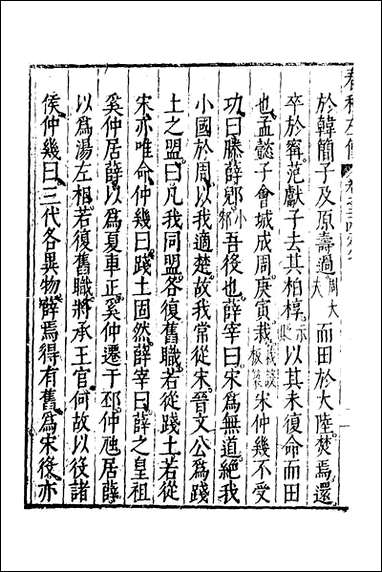 春秋左傳
於韓簡子及原壽過周大夫而田於大陸焚焉還
卒於甯范獻子去其柏椁示貶以其未復命而田
也孟懿子會城成周庚寅栽栽設板築宋仲幾不受
功曰滕薛郳小吾役也薛宰曰宋爲無道絶我
小國於周以我適楚故我常從宋晉文公爲踐
土之盟曰凡我同盟各復舊職若從踐土若從
宋亦唯命仲幾曰踐土固然薛宰曰薛之皇祖
奚仲居薛以爲夏車正奚仲遷于邳仲虺居薛
以爲湯左相若復舊職將承王官何故以役諸
侯仲幾曰三代各異物薛焉得有舊爲宋役亦